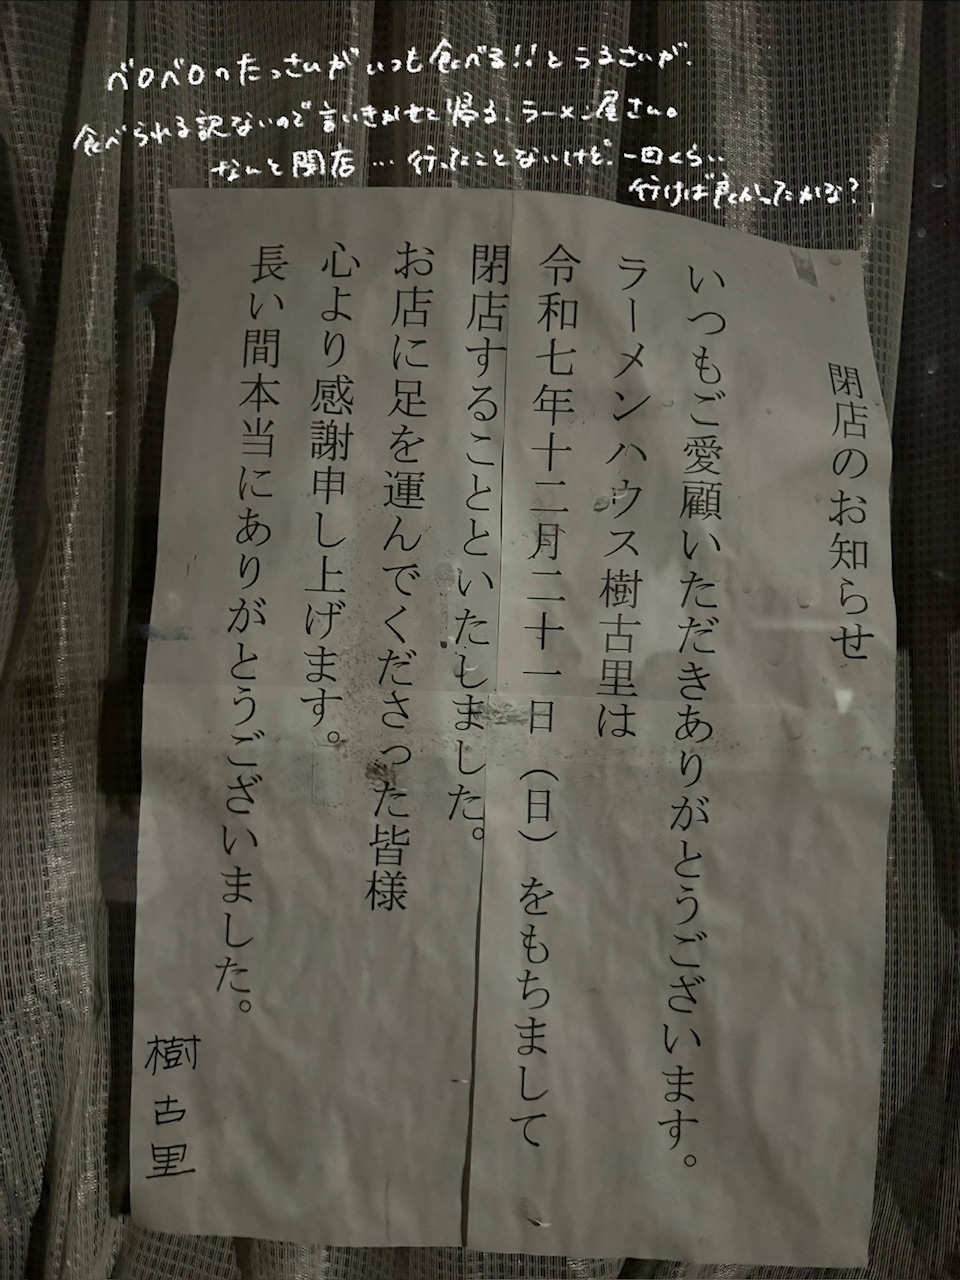 ベロベロのたっさんがいつも食べる!!とうるさいが、
食べられる訳ないので言いきかせて帰る、ラーメン屋さん。
なんと閉店…行ったことないけど、一回くらい
行けば良かったかな?
閉店のお知らせ
いつもご愛顧いただきありがとうございます。
ラーメンハウス樹古里は
令和七年十二月二十一日（日）をもちまして
閉店することといたしました。
お店に足を運んでくださった皆様
心より感謝申し上げます。
長い間本当にありがとうございました。
樹古里